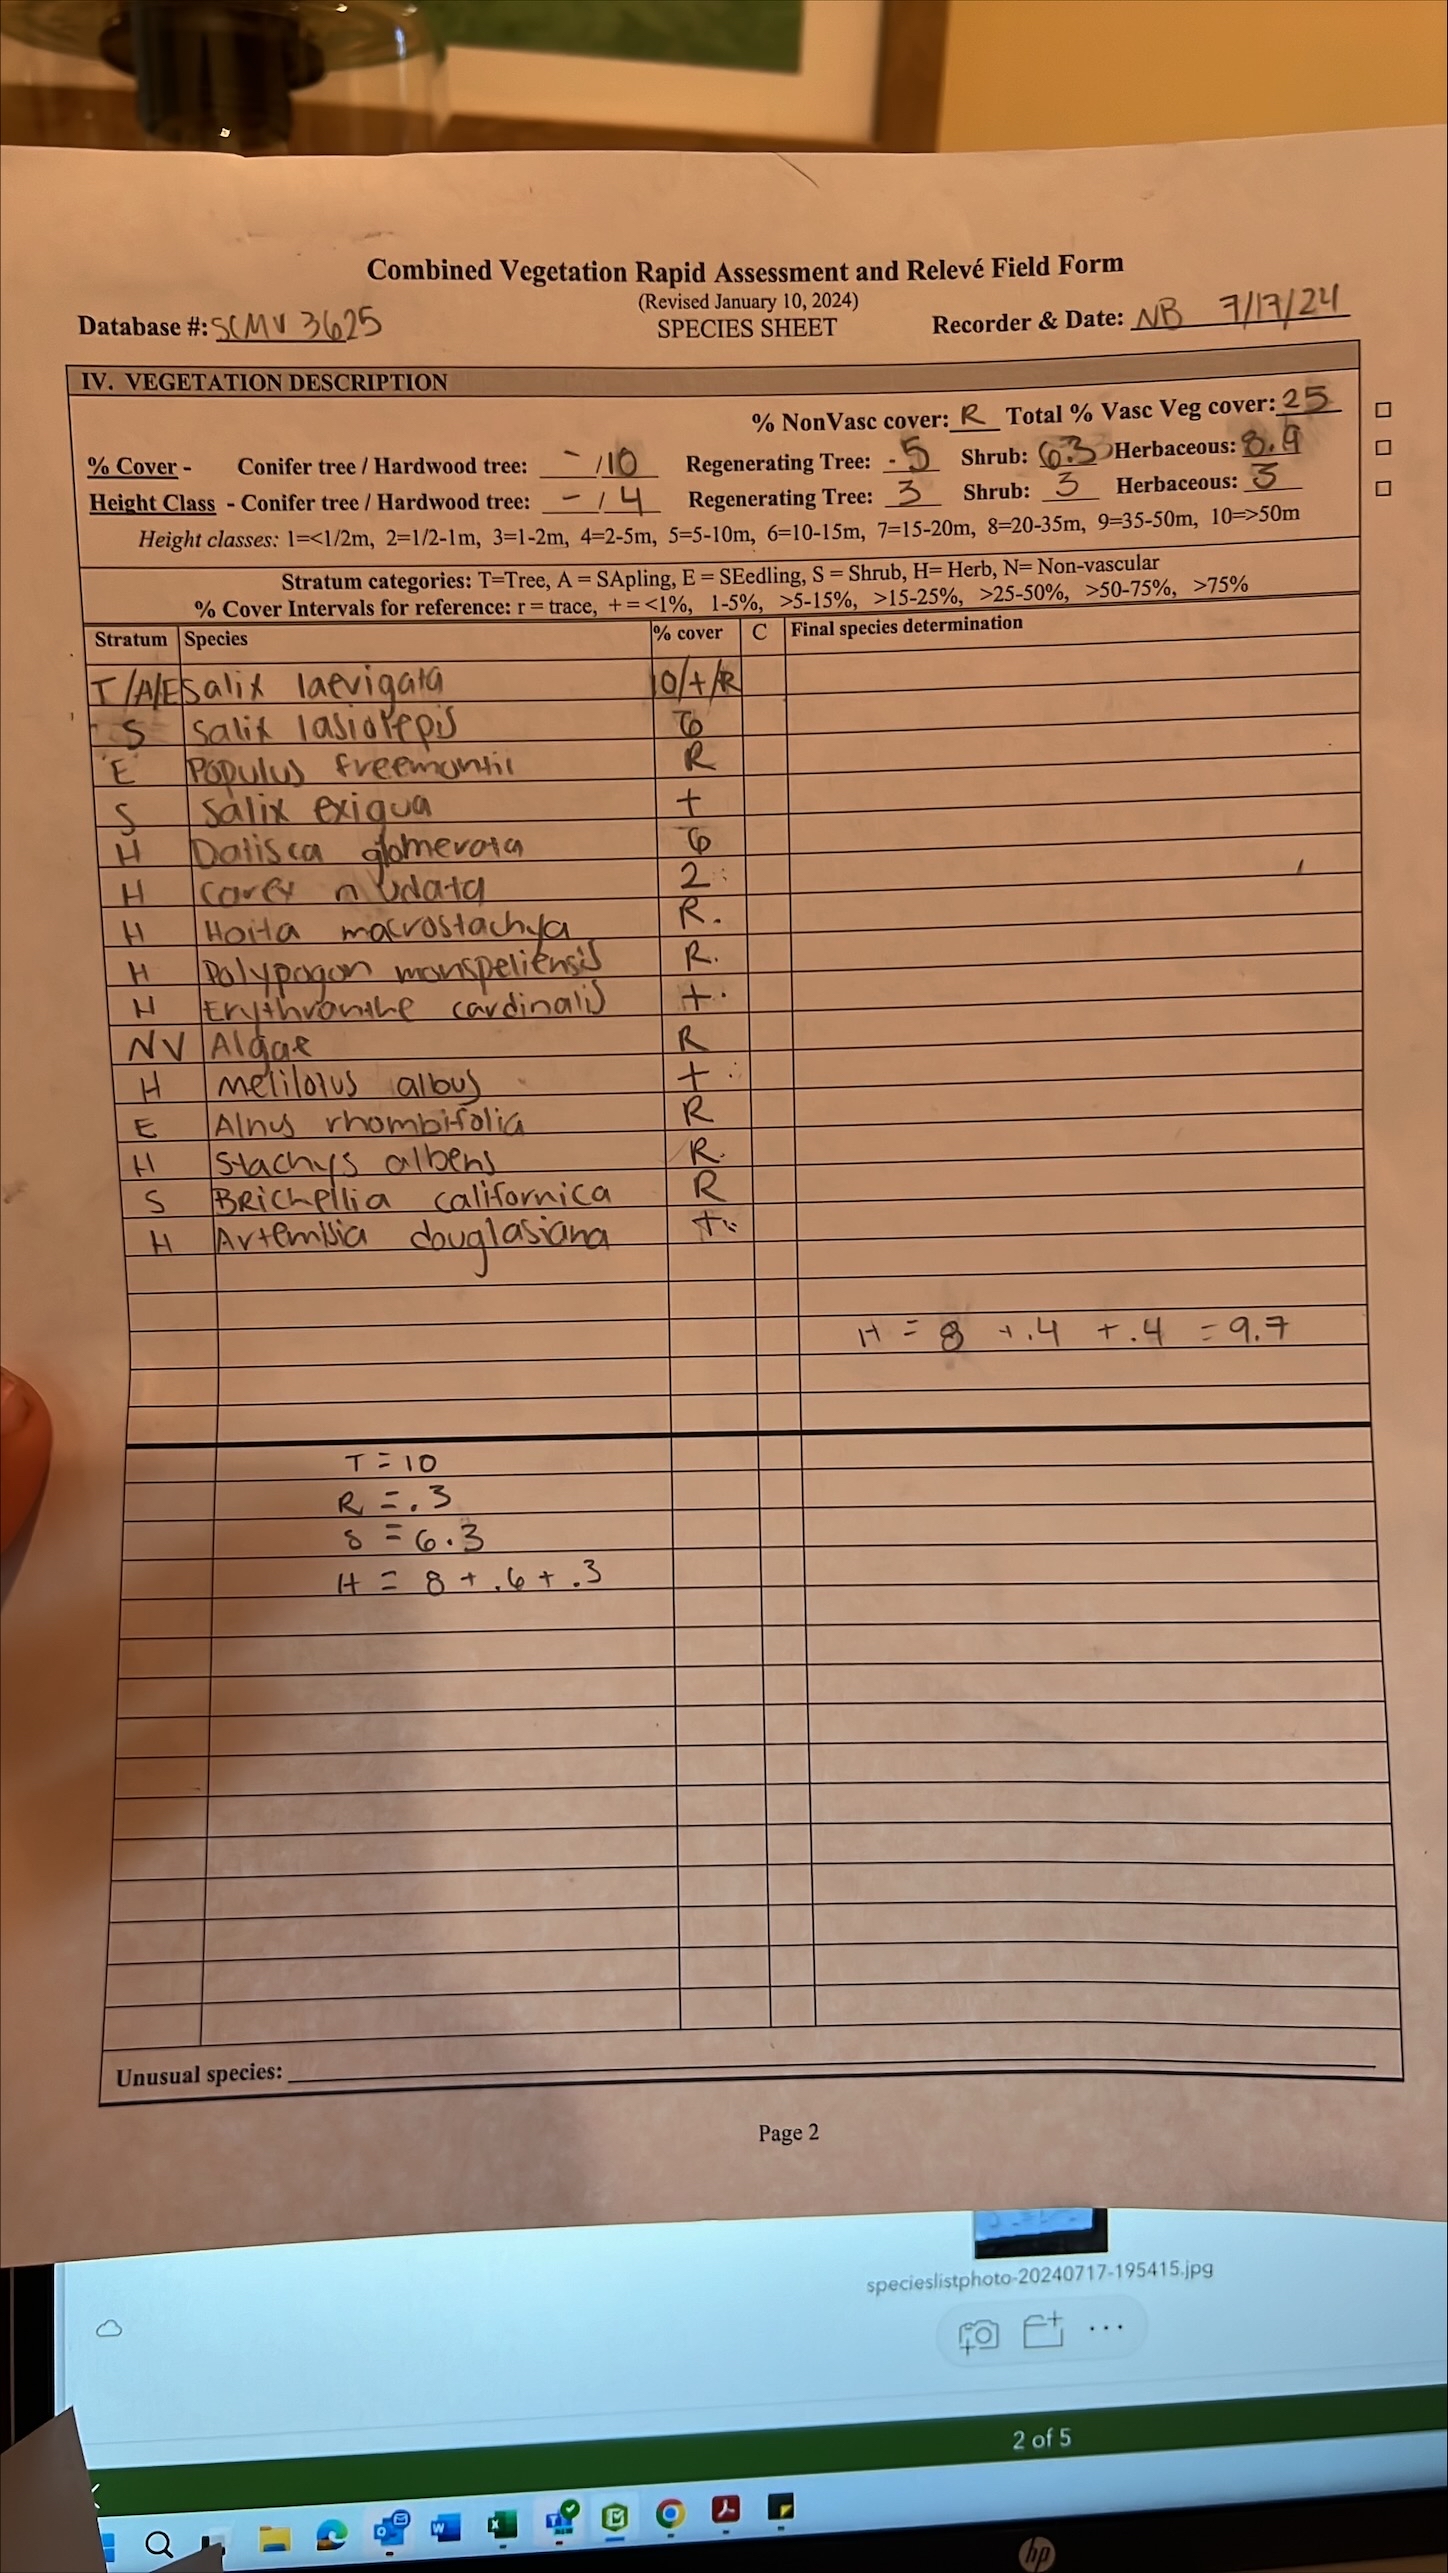 Combined Vegetation Rapid Assessment and Relevé Field Form
(Revised January 10, 2024)
Database #: SCMV 3625 SPECIES SHEET Recorder & Date: NB 7/17/24
IV. VEGETATION DESCRIPTION
% NonVasc cover: R Total % Vasc Veg cover: 25
% Cover - Conifer tree / Hardwood tree: - / 10 Regenerating Tree: .5 Shrub: 6.3 Herbaceous: 8.9
Height Class - Conifer tree / Hardwood tree: - / 4 Regenerating Tree: 3 Shrub: 3 Herbaceous: 3
Height classes: 1=<1/2m, 2=1/2-1m, 3=1-2m, 4=2-5m, 5=5-10m, 6=10-15m, 7=15-20m, 8=20-35m, 9=35-50m, 10=>50m
Stratum categories: T=Tree, A = SApling, E = SEedling, S = Shrub, H= Herb, N= Non-vascular
% Cover Intervals for reference: r = trace, + = <1%, 1-5%, >5-15%, >15-25%, >25-50%, >50-75%, >75%
Stratum Species % cover C Final species determination
T/A/E Salix laevigata 10/+/R
S Salix lasiolepis 6
E Populus freemontii R
S Salix exigua +
H Datisca glomerata 6
H Carex nudata 2
H Hoita macrostachya R.
H Polypogon monspeliensis R.
H Erythranthe cardinalis +.
NV Algae R
H Melilotus albus +
E Alnus rhombifolia R
H Stachys albens R.
S BRichellia californica R
H Artemisia douglasiana +
H = 8 + .4 + .4 = 9.7
T = 10
R = .3
S = 6.3
H = 8 + .6 + .3
Unusual species:
Page 2
specieslistphoto-20240717-195415.jpg
2 of 5
hp